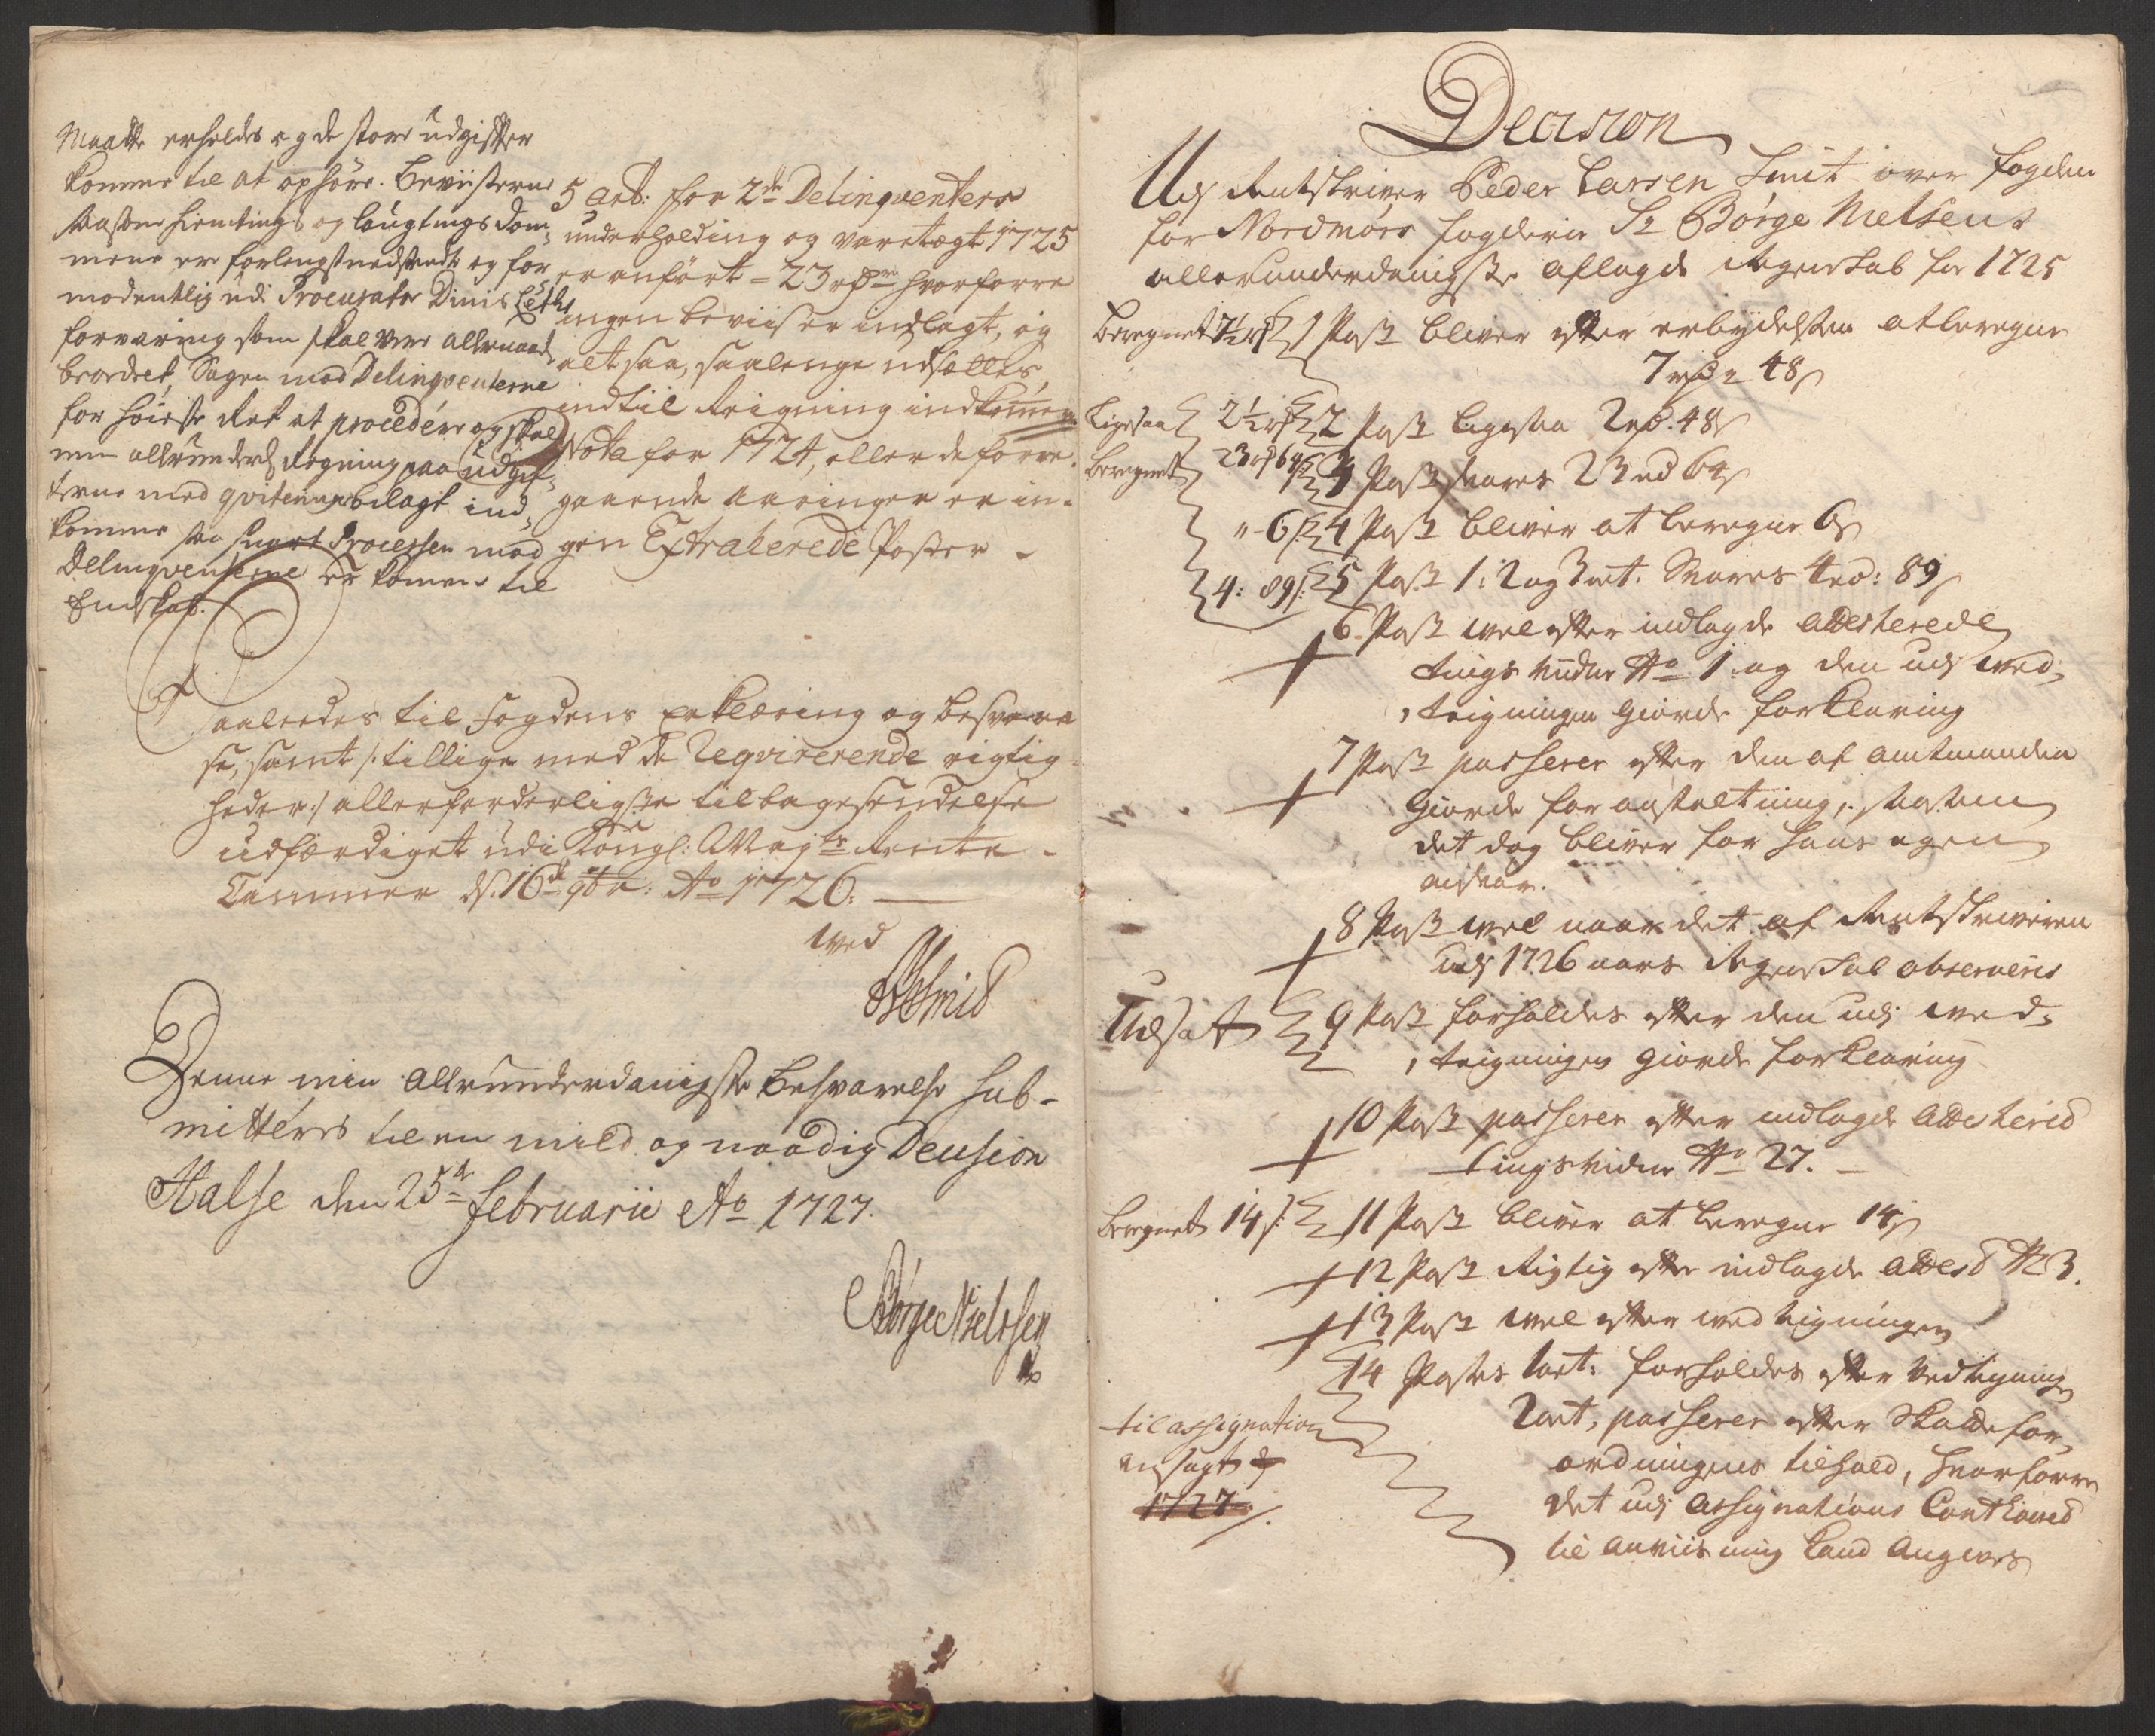 Maatte erholdes og de store udgifter
komme til at ophöre. Beviisterne
saasom hiemtings og laugtings Dom¬
mene ere forlengst nedsendt og for
modentlig udi Procurator Dinis
forvaring som skal være allernaad
beordret, Sagen mod Delinqventerne
for höieste Ret at procedére og skal
min allerunderd Regning paa udgif¬
terne med qviteringer bilagt ind¬
komme saa snart Processen mod
Delinqventerne er kommen til
Endskab.
5 art: for 2de Delinqventers
underholding og varetægt 1725
er anfört = 23 rdr hvorforre
ingen beviis er indlagt, og
altsaa, saalenge udsættes,
indtil Reigning indkommer
Nota for 1724, eller de forre
gaaende aaringer er in¬
gen Extraherede Poster
Saaledes til Fogdens Erklæring og besvarel
se, samt /: tillige med de Reqvirerende rigtig
heder:/ allerforderligste tilbagesendelse
udfærdiget udi Kongl: Mayts Rente
Cammer d. 16de 9br: Ao 1726.
ved
PSmid
Denne min allerunderdanigste besvarelse sub¬
mitteris til en mild og naadig Decision
Halse den 25de februarii Ao 1727.
Börge Nielssen
Decision
Udj Rentskriver Peder Larsen Smit over fogden
for Nordmörs fogderie Sr Börge Nielsens
allerunderdanigste aflagde Regenskab for 1725
beregnet 7½ rd 1 Post bliver efter erbydelsen at beregne
7 rd 48 s
Ligesaa 2½ rd 2 Post ligesaa 2 rd. 48 s
beregnet 23 rd 64 s 3 Post svares 23 rd 64 s
" - 6 s 4 Post bliver at beregne 6 s
4: 89 s 5 Post 1: 2 og 3 art. Svares 4 rd: 89 s
6 Post vel efter indlagde attesterede
tings vidne No 1 og den udj ved¬
tegningen giorde forklaring
7 Post passerer efter den af amtmanden
giorde foranstaltning, saasom
det dog bliver for hans egen
ansvar.
8 Post vel naar det af Rentskriveren
udj 1726 aars Regenskab observeris
Udsat 9 Post forholdes efter den udj ved¬
tegningen giorde forklaring
10 Post passerer efter indlagde attesterid
tingsvidne No 27.
beregnet 14 s 11 Post bliver at beregne 14 s
12 Post Rigtig efter indlagde attest No 3.
13 Post vel efter vedtegningen
14 Postes 1 art: forholdes efter vedtegning
2 art, passerer efter Skattefor¬
ordningens tilhold, hvorforre
det udj assignations Contoired
til anviisning kand angives
til assignation
ansagt
1727